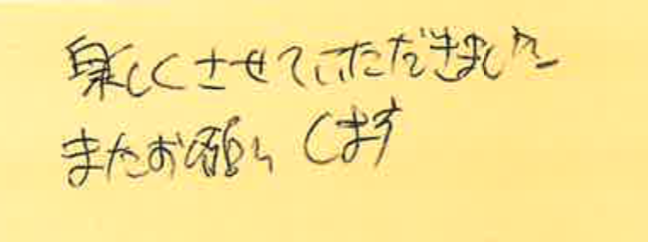 楽しくさせていただきました
またお願いします